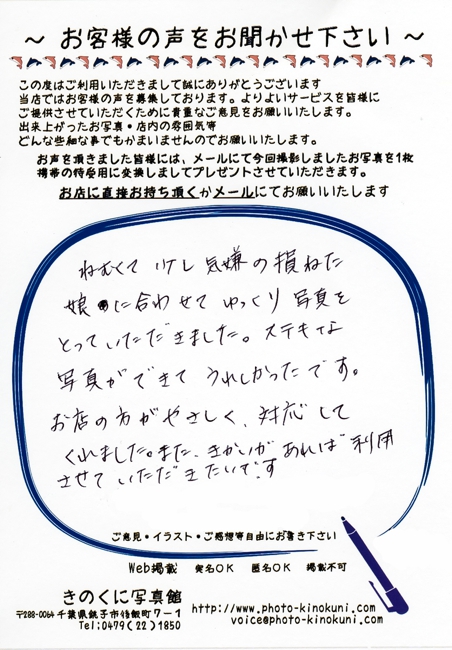 ～ お客様の声をお聞かせ下さい ～
この度はご利用いただきまして誠にありがとうございます
当店ではお客様の声を募集しております。よりよいサービスを皆様に
ご提供させていただくために貴重なご意見をお願いいたします。
出来上がったお写真・店内の雰囲気等
どんな些細な事でもかまいませんのでお願いいたします。
お声を頂きました皆様には、メールにて今回撮影しましたお写真を1枚
携帯の待受用に変換しましてプレゼントさせていただきます。
お店に直接お持ち頂くかメールにてお願いいたします
ねむくて 少し 気嫌の損ねた
娘に合わせて ゆっくり 写真を
とっていただきました。ステキな
写真ができて うれしかったです。
お店の方がやさしく、対応して
くれました。また、きかいがあれば利用
させていただきたいです
ご意見・イラスト・ご感想等自由にお書き下さい
Web掲載 実名OK 匿名OK 掲載不可
きのくに写真館
〒288-0064 千葉県銚子市 町7-1
Tel:0479(22)1850
http://www.photo-kinokuni.com
voice@photo-kinokuni.com